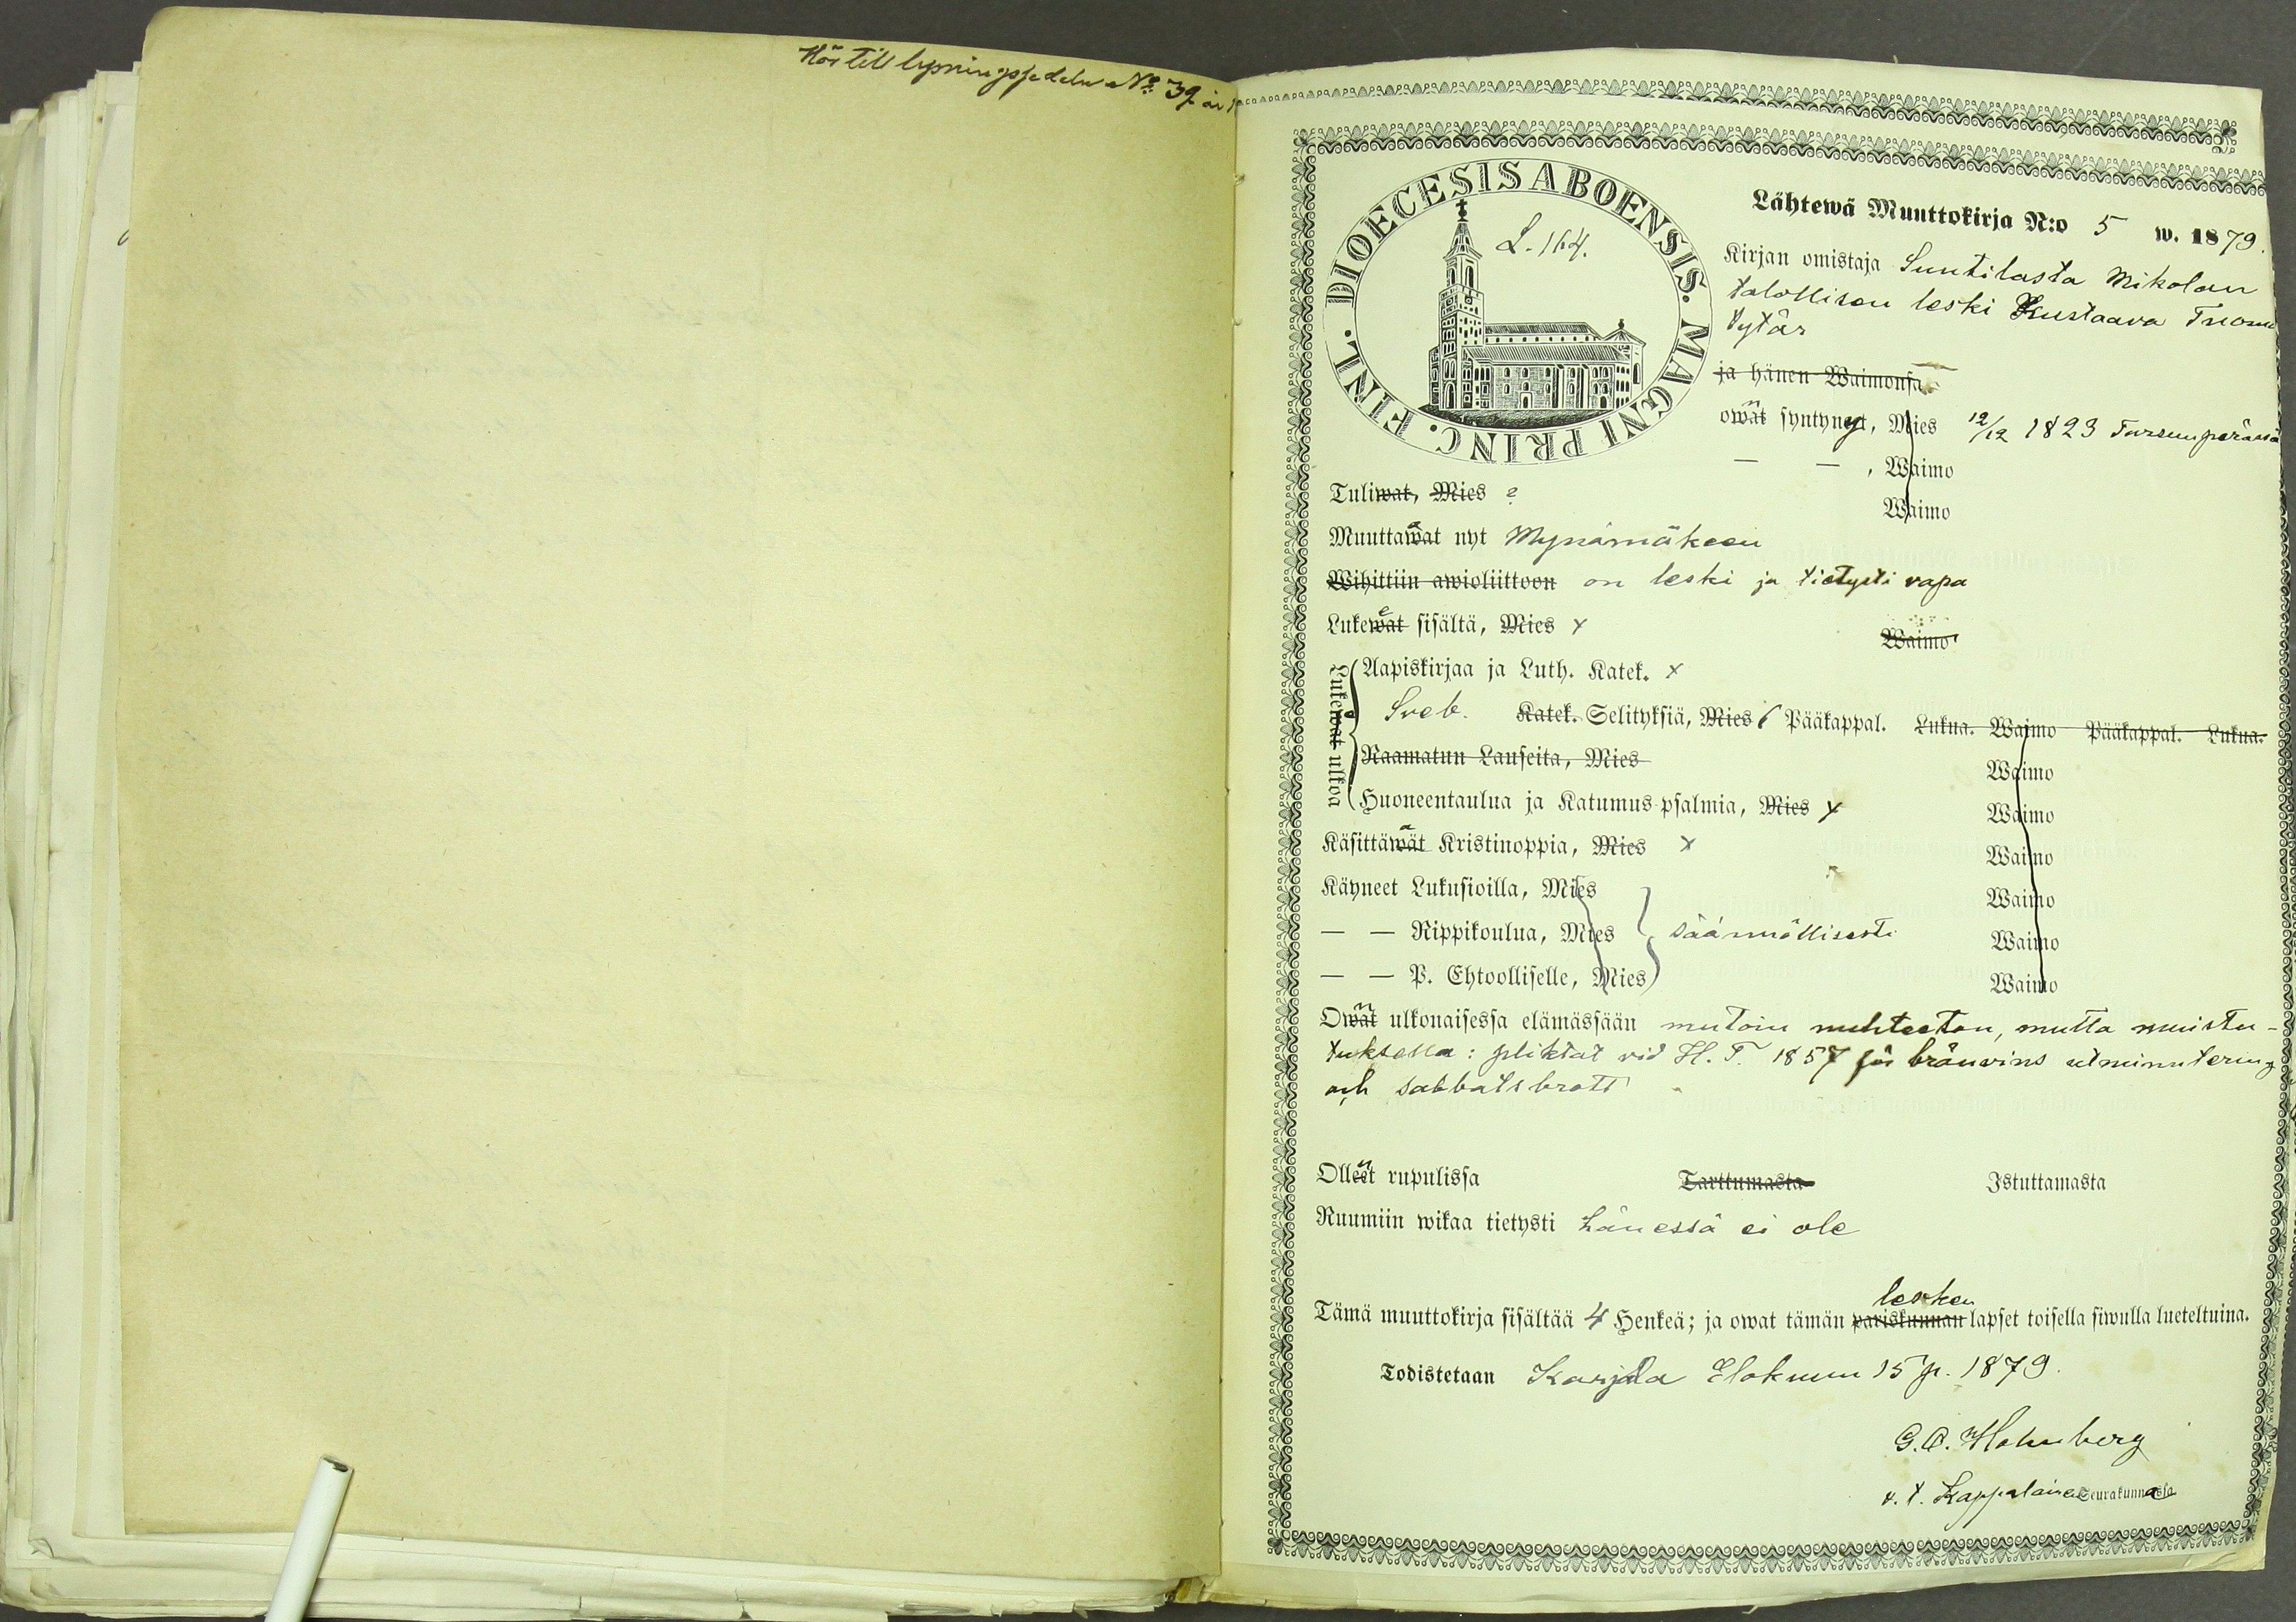 Hör till lysningssedeln No 39 år
DIOECESIS ABOENSIS. MAGNI PRINC. FINL.
L. 164.
Lähtewä Muuttokirja N:o 5 w. 1879.
Kirjan omistaja Suutilasta Mikolan
talollisen leski Kustaava Tuoma
tytär
ja hänen Waimonsa
owat n syntynyt, Mies 12/12 1823
— — , Waimo
Tuliwat, Mies ?
Waimo
Muuttawat a nyt Mynämäkeen
Wihittiin awioliittoon on leski ja tietysti vapa
Lukewat e sisältä, Mies x
Waimo
Lukewat ulkoa
Aapiskirjaa ja Luth. Katek. x
Sveb. Katek. Selityksiä, Mies 6 Pääkappal. Lukua. Waimo Pääkappal. Lukua.
Raamatun Lauseita, Mies Waimo
Huoneentaulua ja Katumus-psalmia, Mies x Waimo
Käsittäwät ä Kristinoppia, Mies x Waimo
Käyneet Lukusioilla, Mies Waimo
— — Rippikoulua, Mies säännöllisesti Waimo
— — P. Ehtoolliselle, Mies Waimo
Owat n ulkonaisessa elämässään mutoin nuhteeton, mutta muistu-
tuksella: pliktat vid H. T. 1857 för bränvins utminutering
och sabbatsbrott
Olleet n rupulissa Tarttumasta Istuttamasta
Ruumiin wikaa tietysti hänessä ei ole
lesken
Tämä muuttokirja sisältää 4 Henkeä; ja owat tämän pariskunnan lapset toisella siwulla lueteltuina.
Todistetaan Karjala Elokuun 15 p. 1879.
G. A. Holmberg
v. t. Kappalainen Seurakunnassa